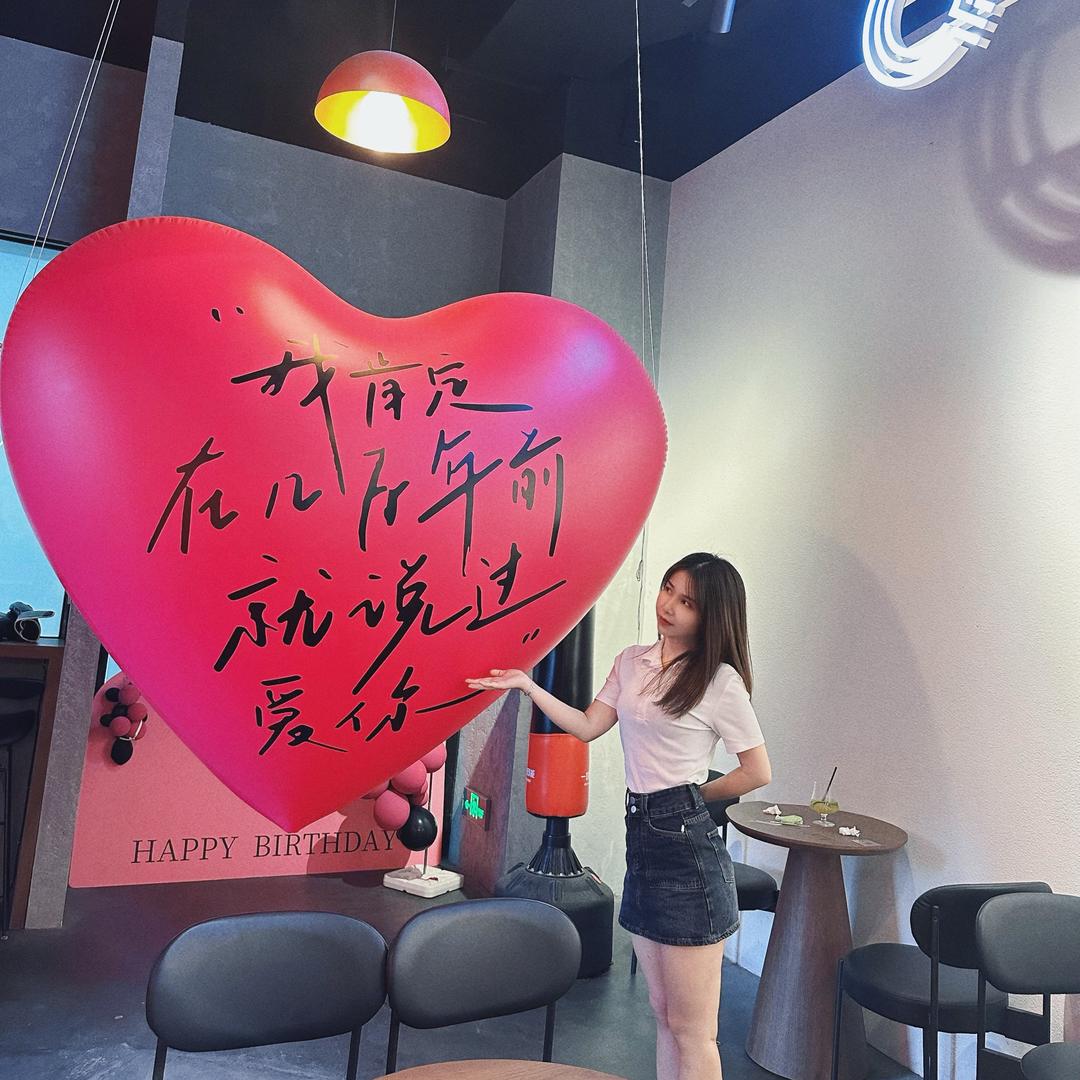 “我肯定
在几百年前
就说过
爱你”
HAPPY BIRTHDAY